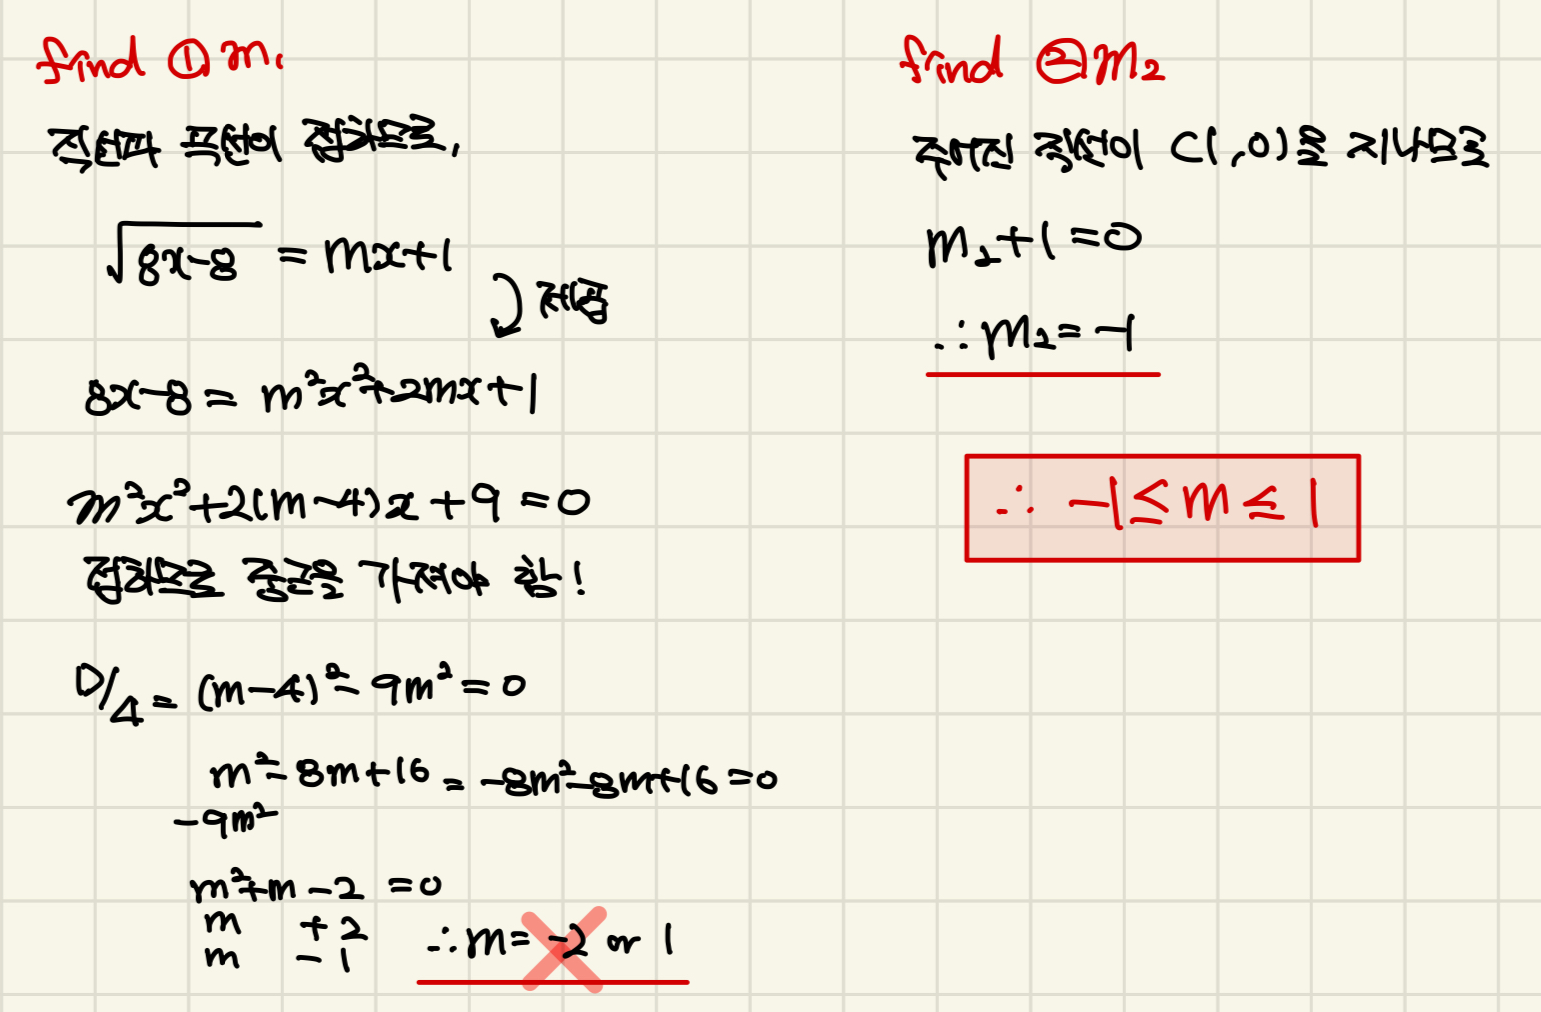 find ① m₁
직선과 곡선이 접하므로,
√(8x-8) = mx+1
제곱
8x-8 = m²x²+2mx+1
m²x²+2(m-4)x+9=0
접하므로 중근을 가져야 함!
D/4 = (m-4)²-9m²=0
m²-8m+16 = -8m²-8m+16=0
-9m²
m²+m-2=0
m +2
m -1
∴m=-2 or 1
find ② m₂
주어진 직선이 (1,0)을 지나므로
m₂+1=0
∴m₂=-1
∴ -1≤m≤1